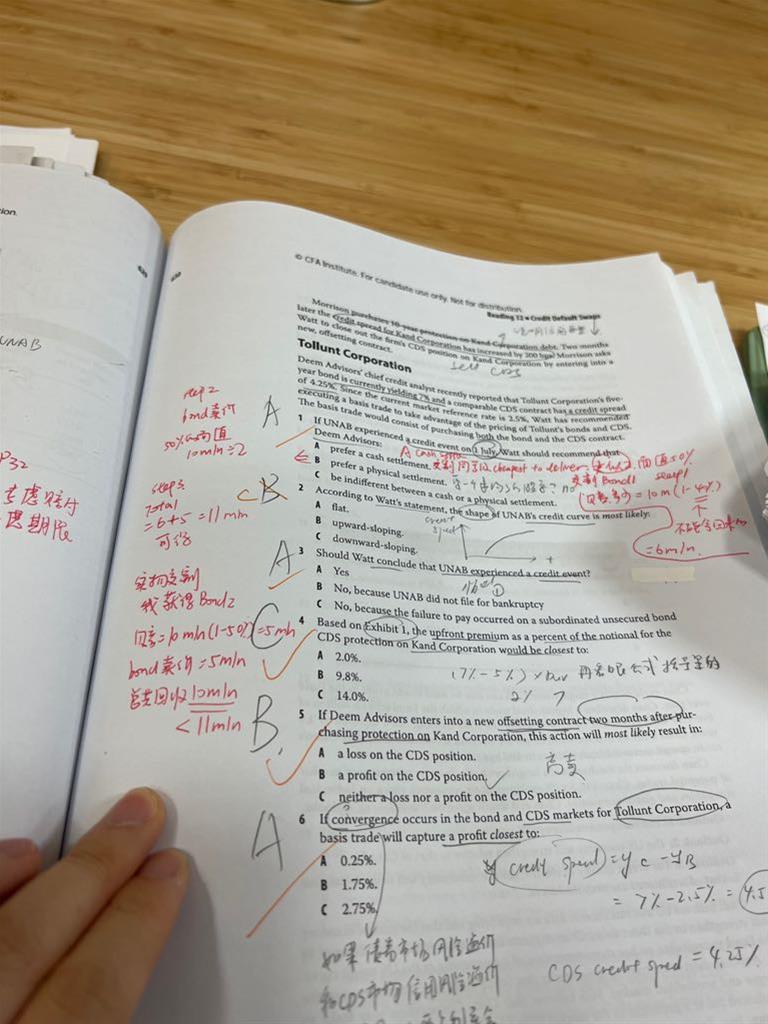 © CFA Institute. For candidate use only. Not for distribution.
Reading 12 • Credit Default Swaps
Morrison purchases 10-year protection on Kand Corporation debt. Two months
later the credit spread for Kand Corporation has increased by 200 bps. Morrison asks
Watt to close out the firm's CDS position on Kand Corporation by entering into a
new, offsetting contract.
sell CDS
Tollunt Corporation
Deem Advisors' chief credit analyst recently reported that Tollunt Corporation's five-
year bond is currently yielding 7% and a comparable CDS contract has a credit spread
of 4.25%. Since the current market reference rate is 2.5%, Watt has recommended
executing a basis trade to take advantage of the pricing of Tollunt's bonds and CDS.
The basis trade would consist of purchasing both the bond and the CDS contract.
1 If UNAB experienced a credit event on 1 July, Watt should recommend that
Deem Advisors:
A prefer a cash settlement.
B prefer a physical settlement.
C be indifferent between a cash or a physical settlement.
2 According to Watt's statement, the shape of UNAB's credit curve is most likely:
A flat.
B upward-sloping.
C downward-sloping.
3 Should Watt conclude that UNAB experienced a credit event?
A Yes
B No, because UNAB did not file for bankruptcy
C No, because the failure to pay occurred on a subordinated unsecured bond
4 Based on Exhibit 1, the upfront premium as a percent of the notional for the
CDS protection on Kand Corporation would be closest to:
A 2.0%.
B 9.8%.
C 14.0%.
(7%-5%)×Dur
2% 7
5 If Deem Advisors enters into a new offsetting contract two months after pur-
chasing protection on Kand Corporation, this action will most likely result in:
A a loss on the CDS position.
B a profit on the CDS position.
C neither a loss nor a profit on the CDS position.
高卖
6 If convergence occurs in the bond and CDS markets for Tollunt Corporation, a
basis trade will capture a profit closest to:
A 0.25%.
B 1.75%.
C 2.75%.
= 7%-2.5% =
CDS credit spred = 4.25%
如果债券市场风险溢价
和CDS市场信用风险溢价
UNAB
P32
step 2
bond卖价
10mln÷2
step 3
Total
=6+5=11mln
可得
实物交割
bond卖价=5mln
<11mln
=10m(1-4%)
=6mln.
A
B
A
C
B.
A